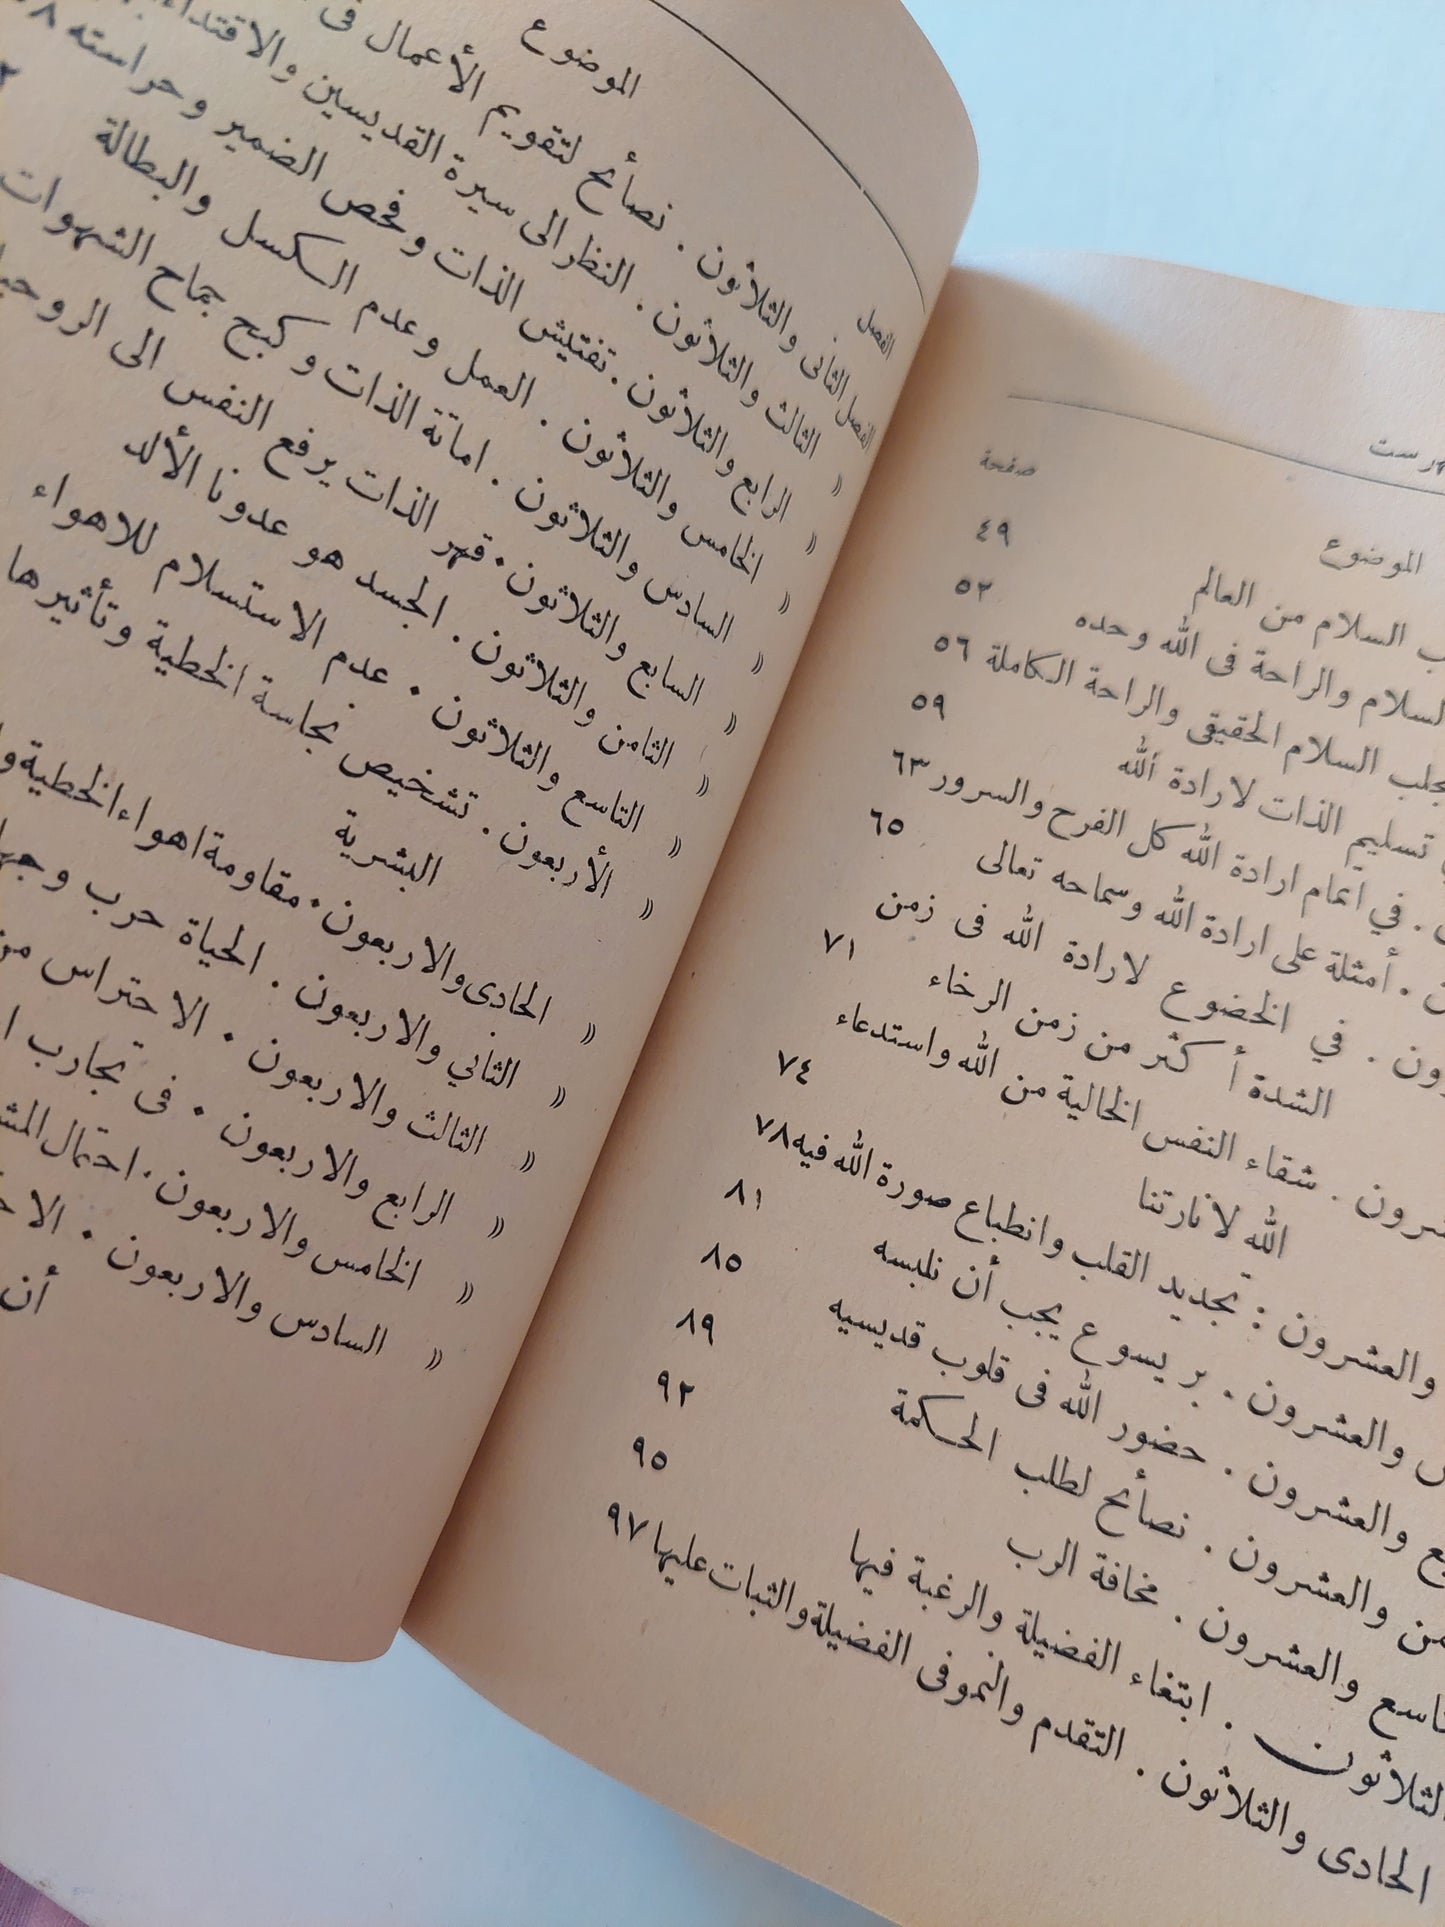 صفحة
الموضوع
السلام من العالم ٤٩
السلام والراحة فى الله وحده ٥٢
السلام الحقيقى والراحة الكاملة ٥٦
تسليم الذات لارادة الله ٥٩
. في اتمام ارادة الله كل الفرح والسرور ٦٣
. أمثلة على ارادة الله وسماحه تعالى ٦٥
. في الخضوع لارادة الله فى زمن
الشدة أكثر من زمن الرخاء ٧١
. شقاء النفس الخالية من الله واستدعاء
الله لانارتنا ٧٤
والعشرون : تجديد القلب وانطباع صورة الله فيه ٧٨
والعشرون . بر يسوع يجب أن نلبسه ٨١
والعشرون . حضور الله فى قلوب قديسيه ٨٥
والعشرون . نصائح لطلب الحكمة ٨٩
والعشرون . مخافة الرب ٩٢
الثلاثون . ابتغاء الفضيلة والرغبة فيها ٩٥
الحادى والثلاثون . التقدم والنمو فى الفضيلة والثبات عليها ٩٧
الفصل الموضوع
الفصل الثانى والثلاثون . نصائح لتقويم الأعمال فى
» الثالث والثلاثون . النظر الى سيرة القديسين والاقتداء
» الرابع والثلاثون . تفتيش الذات وفحص الضمير وحراسته
» الخامس والثلاثون . العمل وعدم الكسل والبطالة
» السادس والثلاثون . اماتة الذات وكبح جماح الشهوات
» السابع والثلاثون . قهر الذات يرفع النفس الى
» الثامن والثلاثون . الجسد هو عدونا الألد
» التاسع والثلاثون . عدم الاستسلام للاهواء
» الأربعون . تشخيص نجاسة الخطية وتأثيرها
البشرية
» الحادى والاربعون . مقاومة اهواء الخطية
» الثاني والاربعون . الحياة حرب
» الثالث والاربعون . الاحتراس من
» الرابع والاربعون . فى تجارب
» الخامس والاربعون . احتمال
» السادس والاربعون .
أن